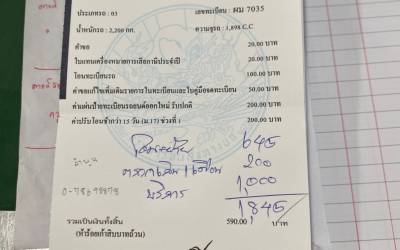 ประเภทรถ : 03 เลขทะเบียน : ผม 7035
น้ำหนักรถ : 2,200 กก. ความจุรถ : 1,898 C.C
คำขอ 20.00 บาท
ใบแทนเครื่องหมายการเสียภาษีประจำปี 20.00 บาท
โอนทะเบียนรถ 100.00 บาท
ค่าขอแก้ไขเพิ่มเติมรายการในทะเบียนและในคู่มือจดทะเบียน 50.00 บาท
ค่าแผ่นป้ายทะเบียนรถยนต์ออกใหม่ รับปกติ 200.00 บาท
ค่าปรับโอนช้ากว่า 15 วัน (ม.17) ช่วงที่ 1 200.00 บาท
645
200
บริการ 1,000
1,845
รวมเป็นเงินทั้งสิ้น 590.00 บาท
(ห้าร้อยเก้าสิบบาทถ้วน)